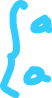 { a
a